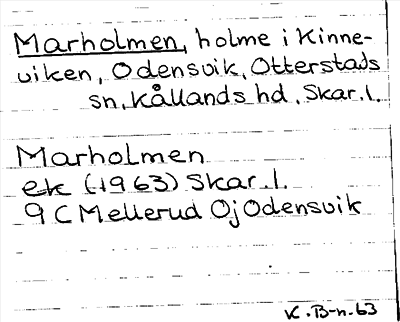 Marholmen, holme i Kinne-
viken, Odensvik, Otterstads
sn, Kållands hd, Skar. l.
Marholmen
ek (1963) Skar. l.
9 C Mellerud Oj Odensvik
K. B-n. 63